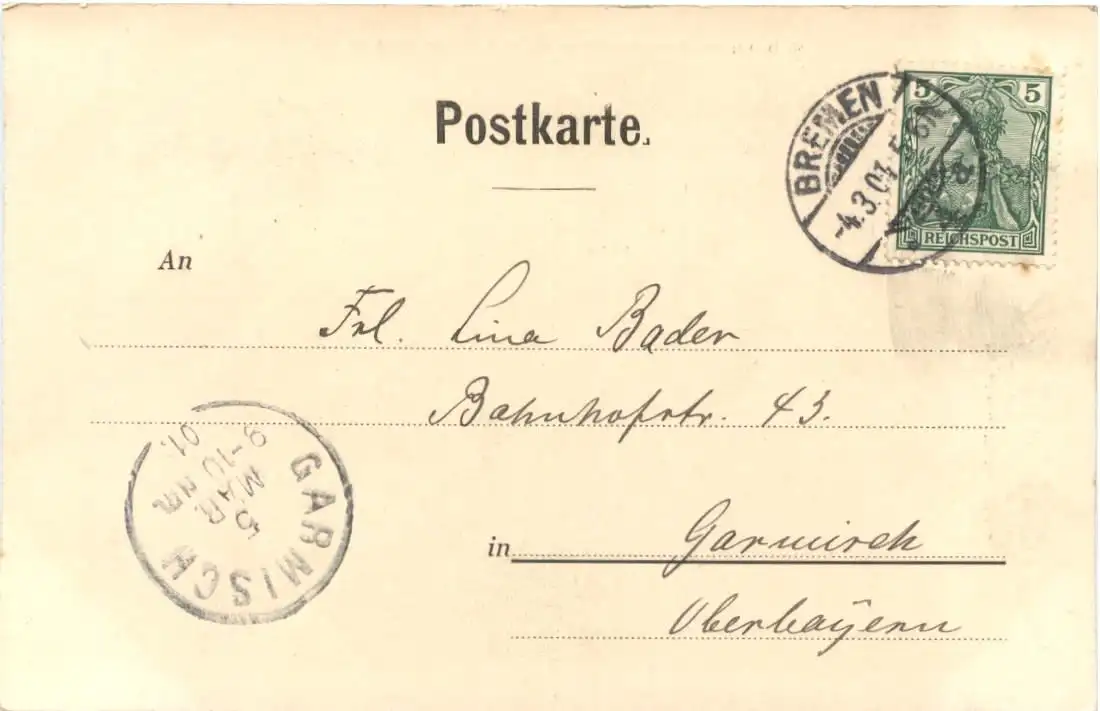 Postkarte.
BREMEN 1
-4.3.01. 5-6N
5 5
REICHSPOST
An
Frl. Lina Bader
Bahnhofstr. 43.
in Garmisch
Oberbayern
GARMISCH
5
MAR.
9-10 NM.
01.